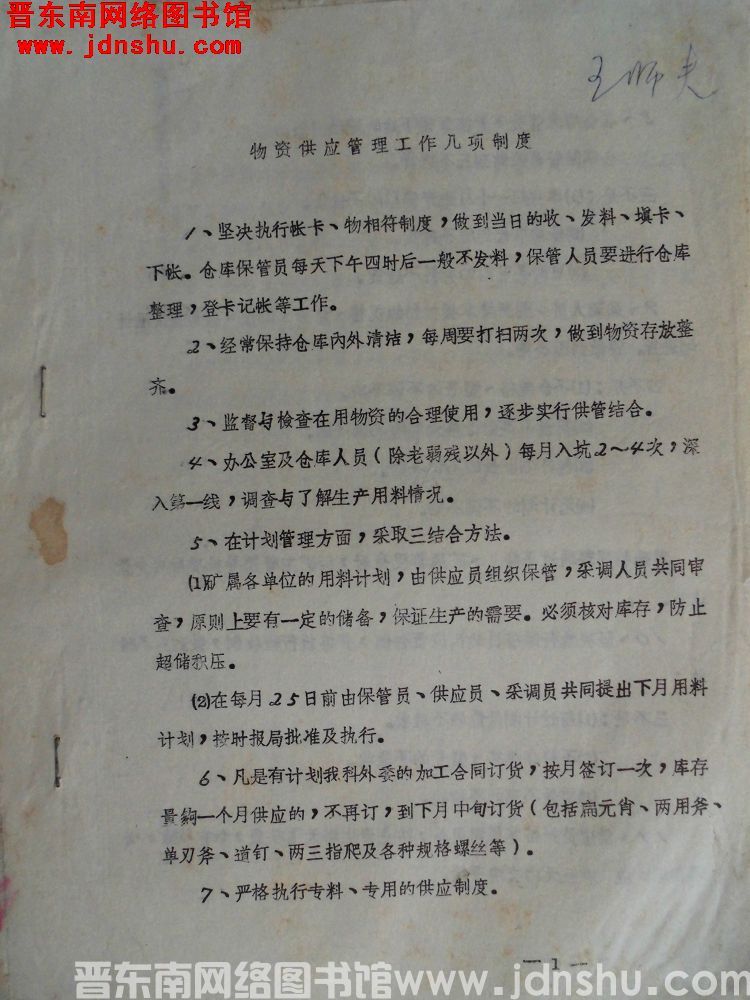 晋东南网络图书馆
www.jdnshu.com
王师夫
物资供应管理工作几项制度
1、坚决执行帐卡、物相符制度，做到当日的收、发料、填卡、
下帐。仓库保管员每天下午四时后一般不发料，保管人员要进行仓库
整理，登卡记帐等工作。
2、经常保持仓库内外清洁，每周要打扫两次，做到物资存放整
齐。
3、监督与检查在用物资的合理使用，逐步实行供管结合。
4、办公室及仓库人员（除老弱残以外）每月入坑2～4次，深
入第一线，调查与了解生产用料情况。
5、在计划管理方面，采取三结合方法。
(1)矿属各单位的用料计划，由供应员组织保管，采调人员共同审
查，原则上要有一定的储备，保证生产的需要。必须核对库存，防止
超储积压。
(2)在每月25日前由保管员、供应员、采调员共同提出下月用料
计划，按时报局批准及执行。
6、凡是有计划我科外委的加工合同订货，按月签订一次，库存
量够一个月供应的，不再订，到下月中旬订货（包括扁元肖、两用斧、
单刃斧、道钉、两三指爬及各种规格螺丝等）。
7、严格执行专料、专用的供应制度。
— 1 —
晋东南网络图书馆www.jdnshu.com